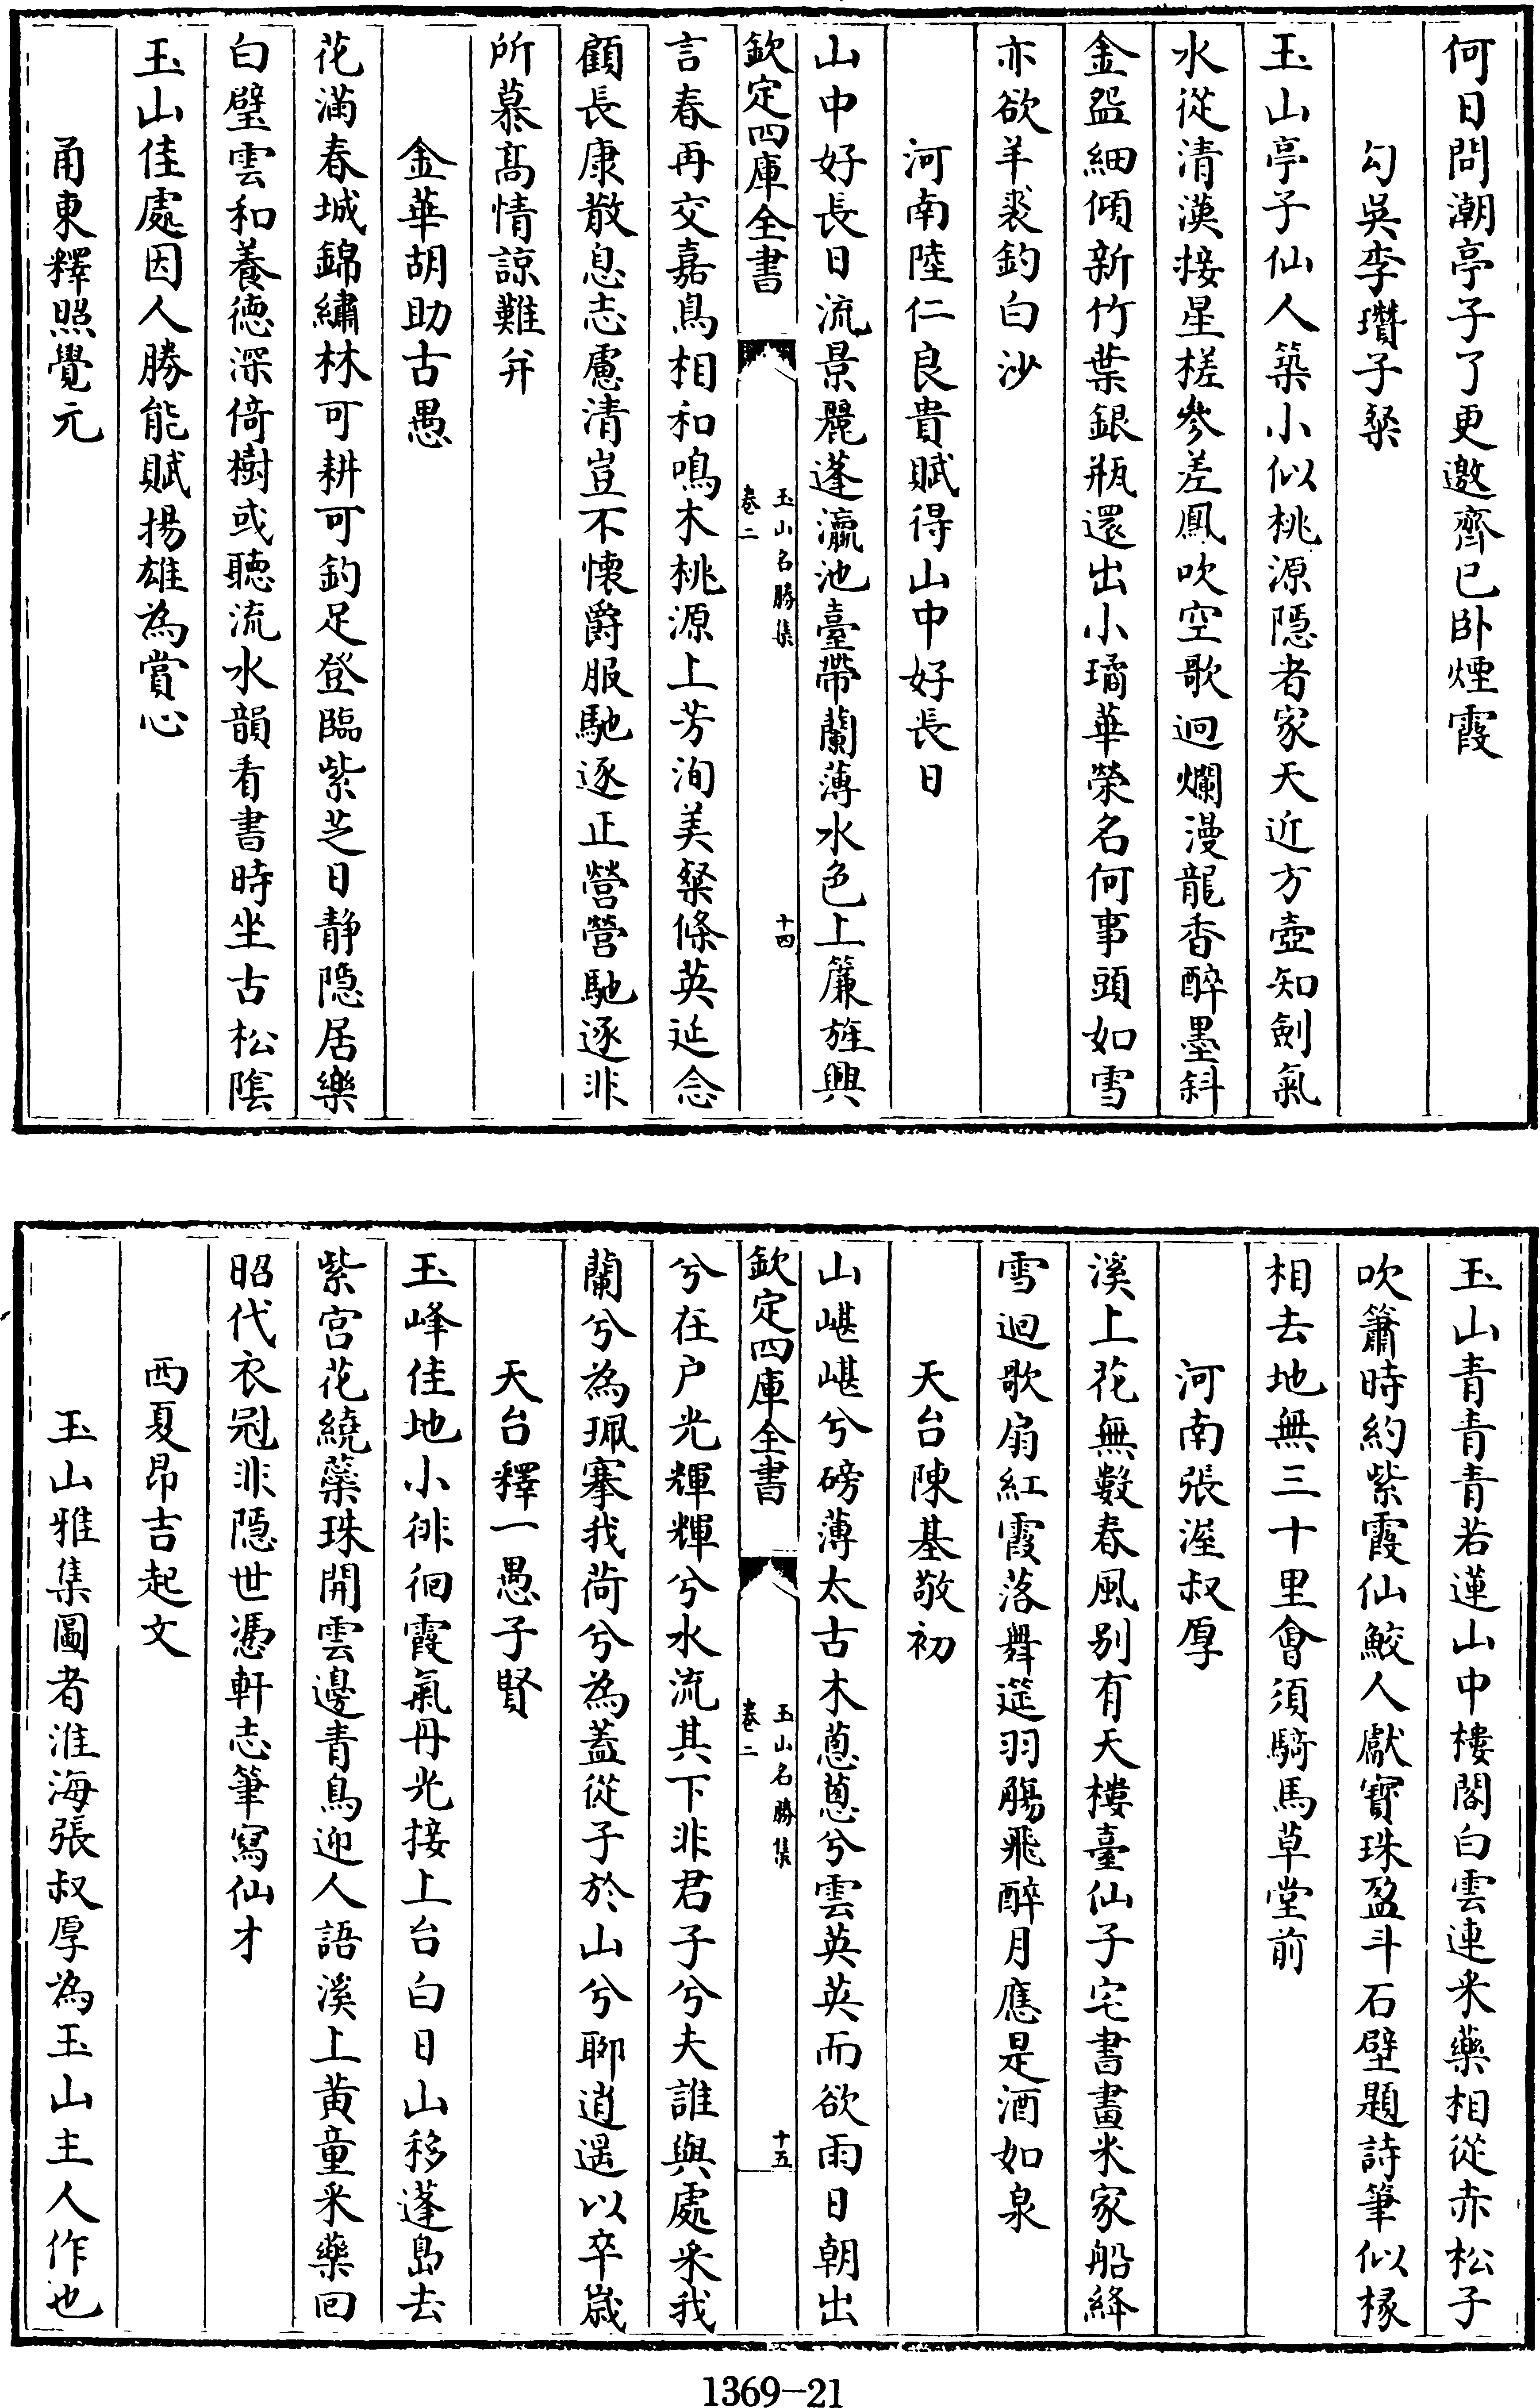 何日問潮亭子了更邀齊已卧煙霞
勾吳李瓚子粲
玉山亭子仙人築小似桃源隠者家天近方壺知劍氣
水從清漢接星槎參差鳳吹空歌迥爛漫龍香醉墨斜
金盌細傾新竹葉銀瓶還出小璚華榮名何事頭如雪
亦欲羊裘釣白沙
河南陸仁良貴賦得山中好長日
山中好長日流景麗蓬瀛池臺帶蘭薄水色上簾旌興
欽定四庫全書
玉山名勝集
卷二
十四
言春再交嘉鳥相和鳴木桃源上芳洵美粲條英延念
顧長康散息志慮清豈不懐爵服馳逐正營營馳逐非
所慕髙情諒難并
金華胡助古愚
花滿春城錦繡林可耕可釣足登臨紫芝日静隠居樂
白璧雲和養徳深倚樹或聽流水韻看書時坐古松隂
玉山佳處因人勝能賦揚雄為賞心
甬東釋照覺元
玉山青青青若蓮山中樓閣白雲連采藥相從赤松子
吹簫時約紫霞仙鮫人獻寳珠盈斗石壁題詩筆似椽
相去地無三十里會須騎馬草堂前
河南張渥叔厚
溪上花無數春風别有天樓臺仙子宅書畫米家船絳
雪迴歌扇紅霞落舞筵羽觴飛醉月應是酒如泉
天台陳基敬初
山嵁嵁兮磅薄太古木蔥蔥兮雲英英而欲雨日朝出
欽定四庫全書
玉山名勝集
卷二
十五
兮在户光輝輝兮水流其下非君子兮夫誰與處采我
蘭兮為珮搴我荷兮為蓋從子於山兮聊逍遥以卒嵗
天台釋一愚子賢
玉峰佳地小徘徊霞氣丹光接上台白日山移蓬島去
紫宫花繞蘂珠開雲邊青鳥迎人語溪上黄童采藥回
昭代衣冠非隠世憑軒志筆寫仙才
西夏昂吉起文
玉山雅集圖者淮海張叔厚為玉山主人作也
1369-21